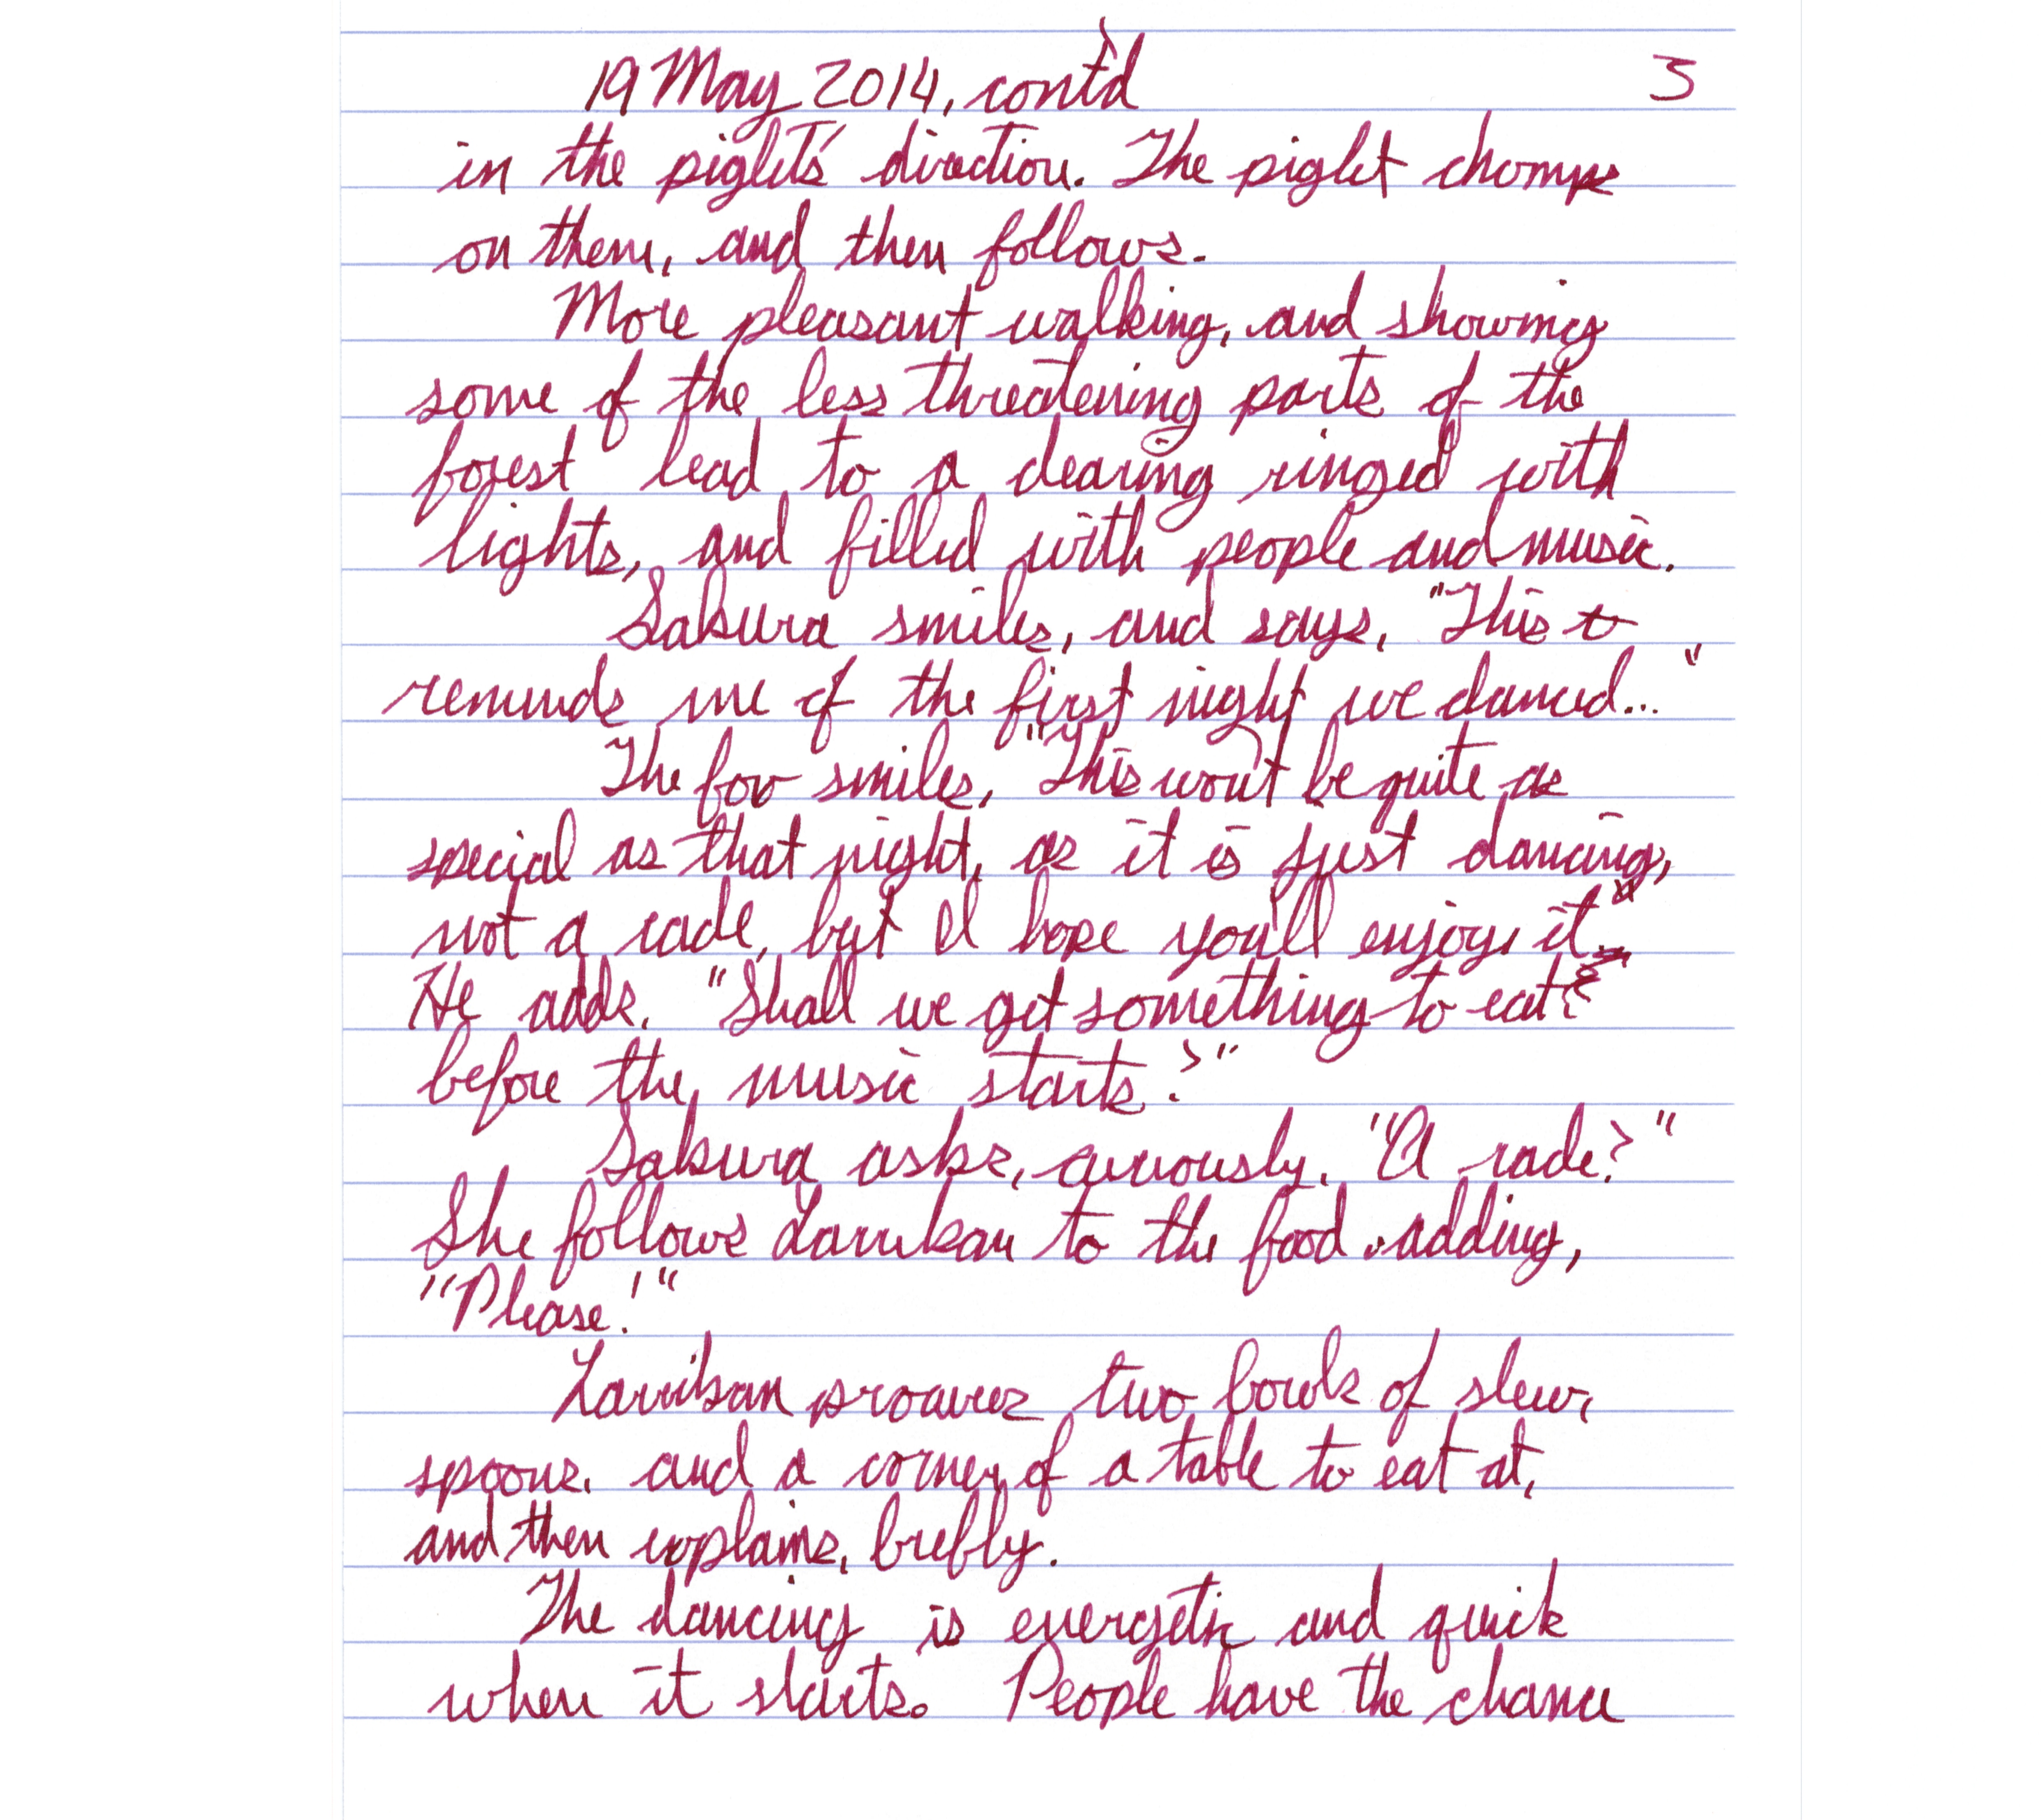 19 May 2014, cont'd 3
in the piglet's direction. The piglet chomps
on them, and then follows.
More pleasant walking, and showing
some of the less threatening parts of the
forest lead to a clearing ringed with
lights, and filled with people and music.
Sakura smiles, and says, "This
reminds me of the first night we danced..."
The fox smiles, "This won't be quite as
special as that night, as it is just dancing,
not a rade, but I hope you'll enjoy it."
He adds, "Shall we get something to eat
before the music starts?"
Sakura asks, curiously, "A rade?"
She follows Larrikan to the food, adding,
"Please!"
Larrikan procures two bowls of stew,
spoons, and a corner of a table to eat at,
and then explains, briefly.
The dancing is energetic and quick
when it starts. People have the chance